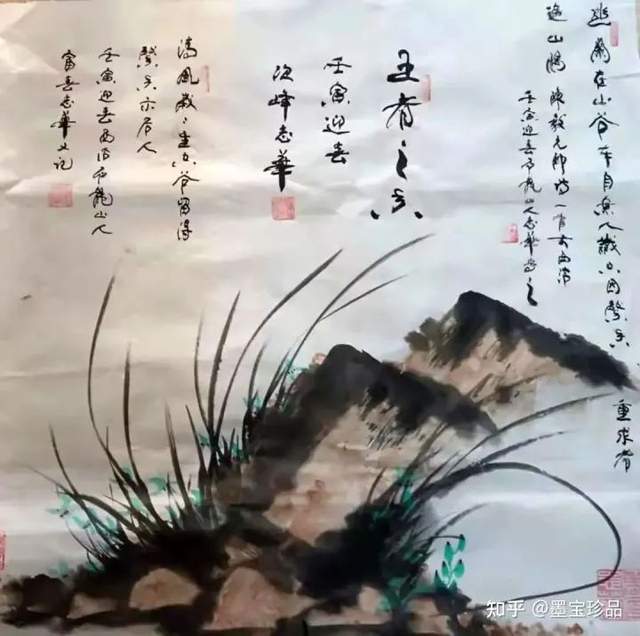 幽蘭在山谷本自無人識只因馨香
重求者
遍山隅 陳毅元帥詩一首
壬寅迎春 龍山人志華寫之
王者之香
壬寅迎春
峰志華
清風歲歲生空谷留得
馨香示後人
壬寅迎春 龍山人
富春志華又記
知乎 @墨宝珍品